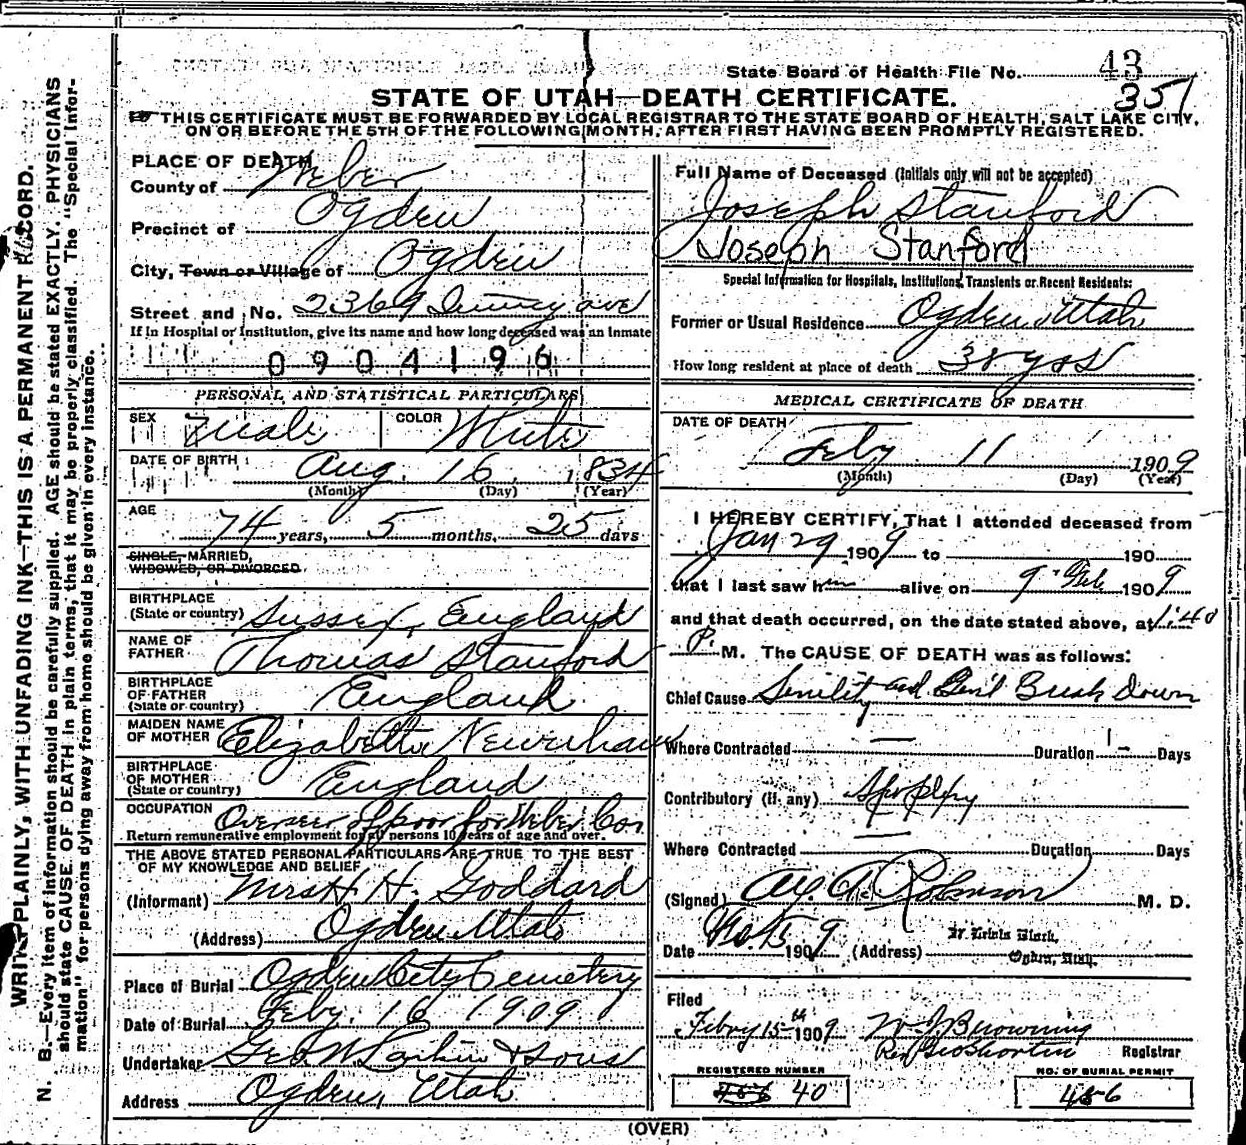 WRITE PLAINLY, WITH UNFADING INK—THIS IS A PERMANENT RECORD.
N. B.—Every item of information should be carefully supplied. AGE should be stated EXACTLY. PHYSICIANS
should state CAUSE OF DEATH in plain terms, that it may be properly classified. The "Special Infor-
mation" for persons dying away from home should be given in every instance.
State Board of Health File No. 43
351
STATE OF UTAH—DEATH CERTIFICATE.
THIS CERTIFICATE MUST BE FORWARDED BY LOCAL REGISTRAR TO THE STATE BOARD OF HEALTH, SALT LAKE CITY,
ON OR BEFORE THE 5TH OF THE FOLLOWING MONTH, AFTER FIRST HAVING BEEN PROMPTLY REGISTERED.
PLACE OF DEATH
County of Weber
Precinct of Ogden
City, Town or Village of Ogden
Street and No. 2369 ave
If in Hospital or Institution, give its name and how long deceased was an inmate
0904196
PERSONAL AND STATISTICAL PARTICULARS
SEX Male COLOR White
DATE OF BIRTH Aug. 16, 1834
(Month) (Day) (Year)
AGE 74 years, 5 months, 25 days
SINGLE, MARRIED,
WIDOWED, OR DIVORCED
BIRTHPLACE
(State or country) Sussex, England
NAME OF
FATHER Thomas Stanford
BIRTHPLACE
OF FATHER
(State or country) England
MAIDEN NAME
OF MOTHER Elizabeth
BIRTHPLACE
OF MOTHER
(State or country) England
OCCUPATION Overseer of poor for Weber Co.
Return remunerative employment for all persons 10 years of age and over.
THE ABOVE STATED PERSONAL PARTICULARS ARE TRUE TO THE BEST
OF MY KNOWLEDGE AND BELIEF
(Informant) Mrs H. H. Goddard
(Address) Ogden Utah
Place of Burial Ogden City Cemetery
Date of Burial Feby. 16 1909
Undertaker Geo W. Larkin & Sons
Address Ogden, Utah
Full Name of Deceased (Initials only will not be accepted)
Joseph Stanford
Joseph Stanford
Special Information for Hospitals, Institutions, Transients or Recent Residents:
Former or Usual Residence Ogden, Utah
How long resident at place of death 38 yrs
MEDICAL CERTIFICATE OF DEATH
DATE OF DEATH
Feby 11 1909
(Month) (Day) (Year)
I HEREBY CERTIFY, That I attended deceased from
Jan 29 1909 to 190
that I last saw him alive on 9 Feb 1909
and that death occurred, on the date stated above, at 1:40
P. M. The CAUSE OF DEATH was as follows:
Chief Cause Senility and Gen'l Break Down
Where Contracted — Duration — Days
Contributory (if any) Apoplexy
Where Contracted — Duration Days
(Signed) Robinson M. D.
Date 1909 (Address)
Ogden, Utah.
Filed
Febry 15th 1909 W. J. Browning
Registrar
REGISTERED NUMBER
456 40
NO. OF BURIAL PERMIT
456
(OVER)